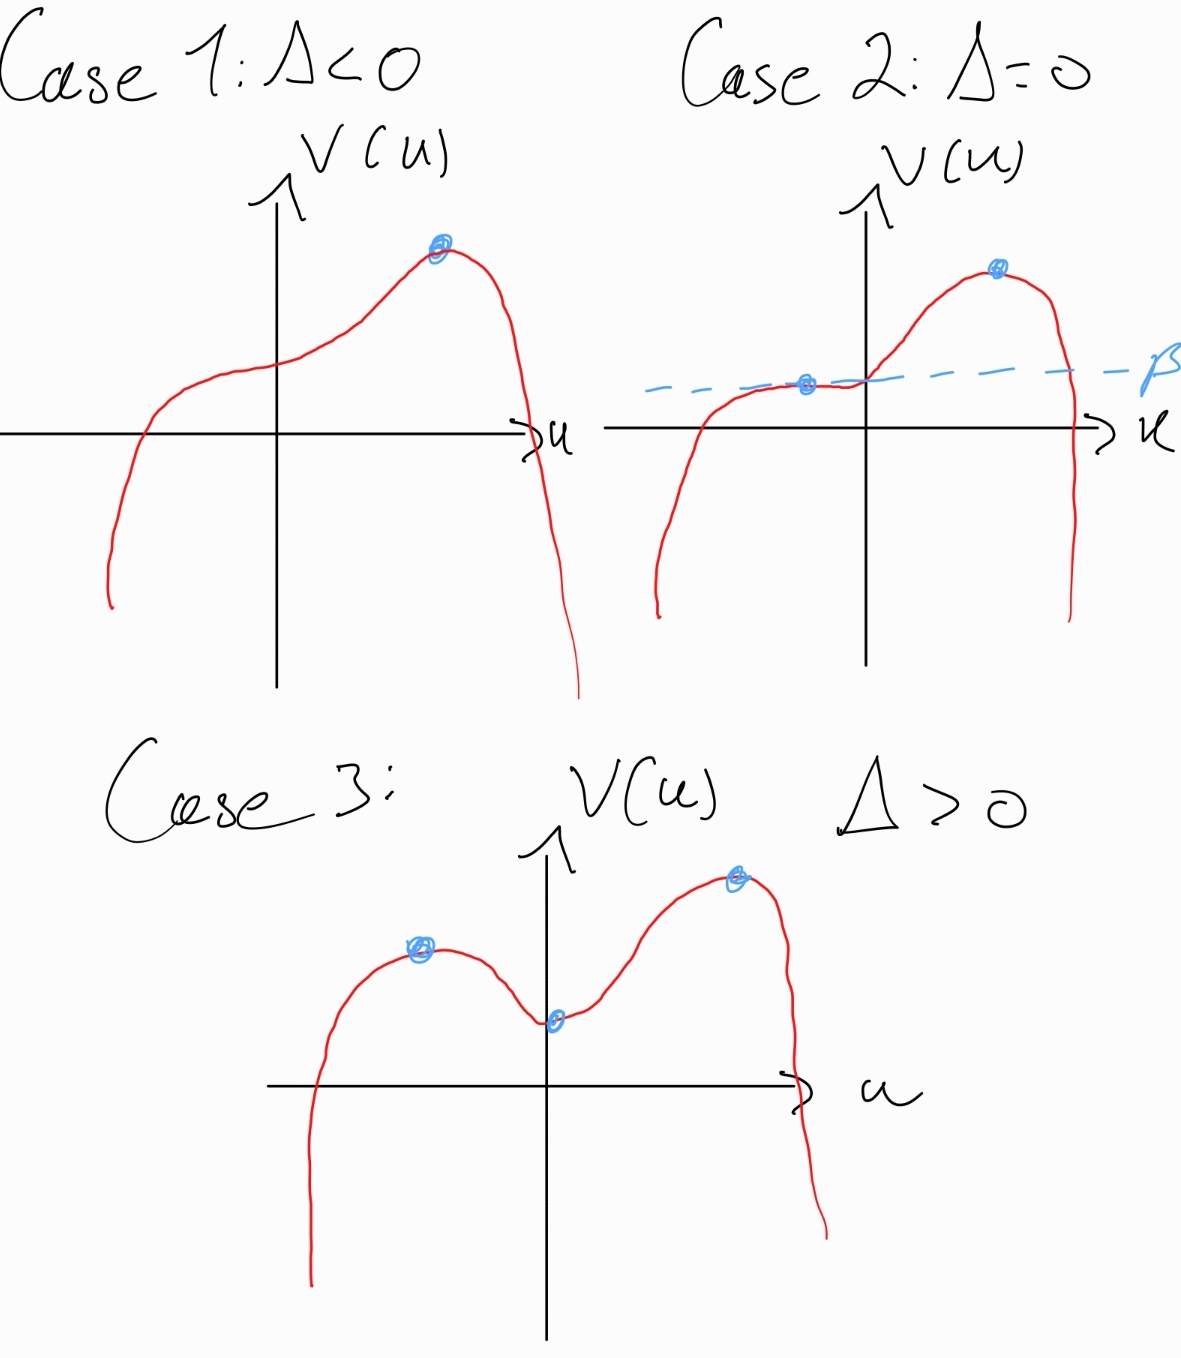 Case 1: Δ<0
V(u)
u
Case 2: Δ=0
V(u)
β
u
Case 3:
V(u)
Δ>0
u